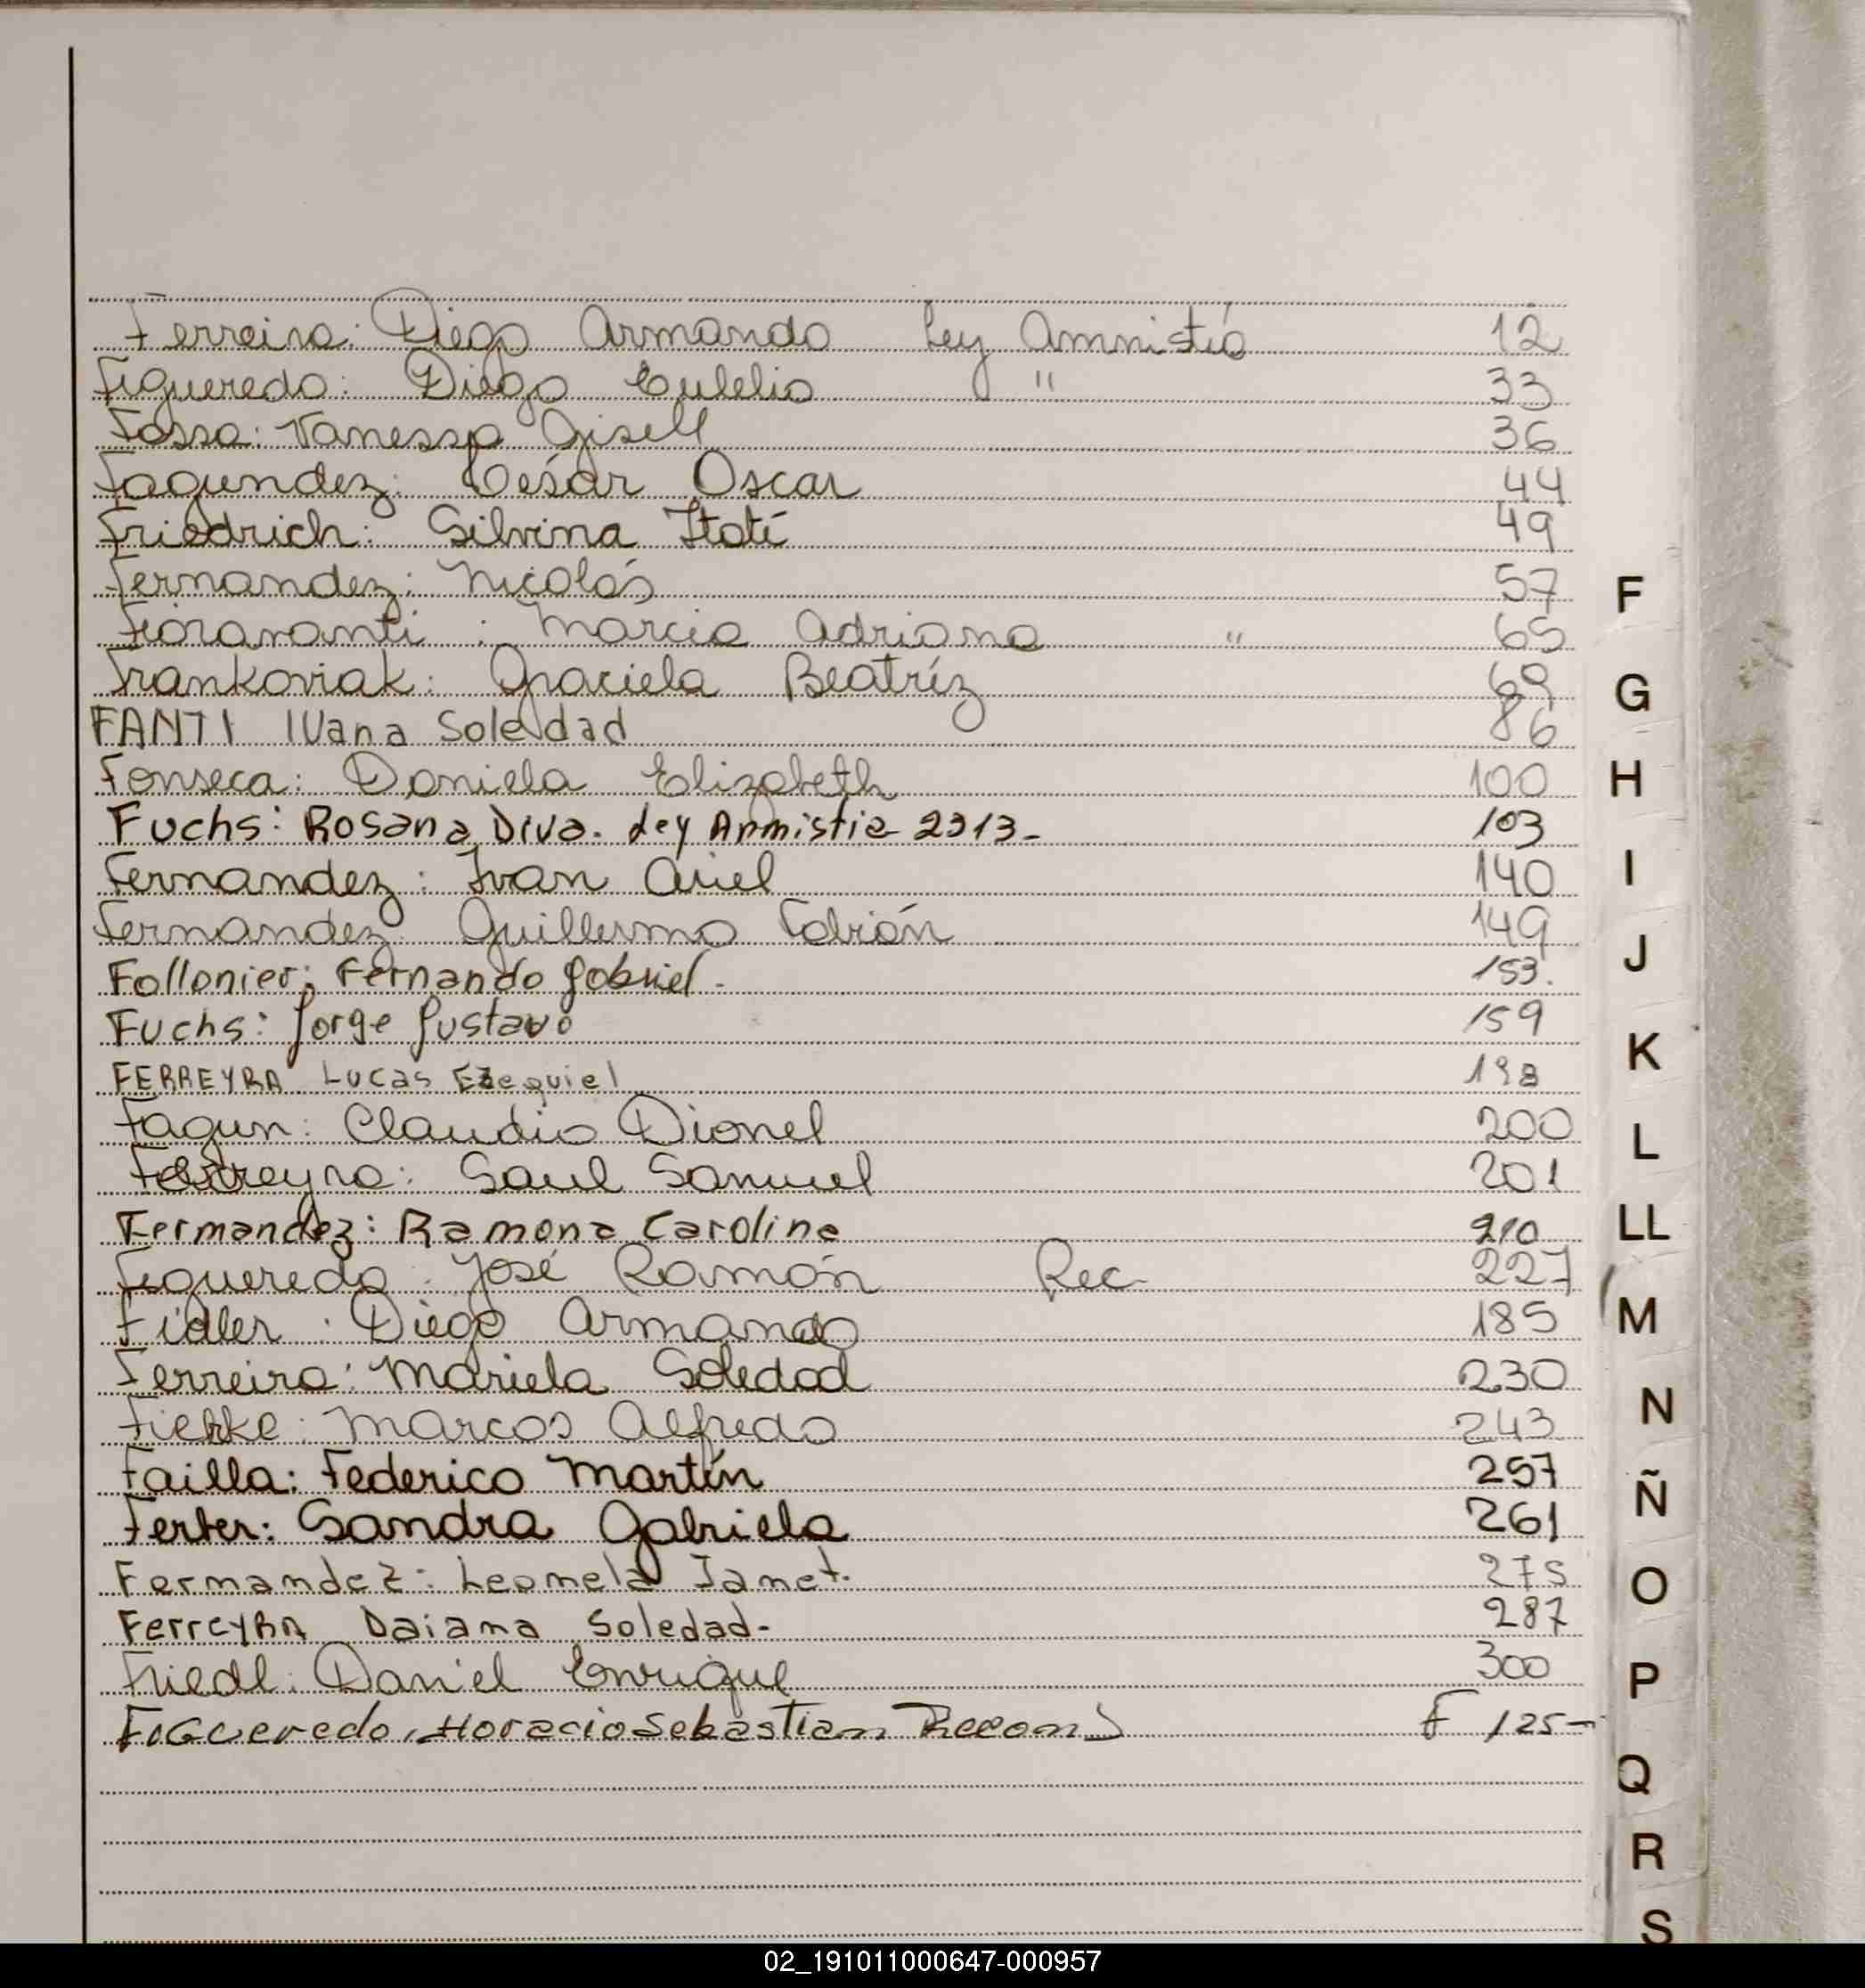 Ferreira: Diego Armando Ley Amnistia 12
Figueredo: Diego Eulelio " 33
Fossa: Vanessa Gisell 36
Fagundez: César Oscar 44
Friedrich: Silvina Itatí 49
Fernandez: Nicolás 57
Fioravanti: Marcia Adriana " 65
Frankoviak: Graciela Beatríz 69
FANTI IVana Soledad 86
Fonseca: Daniela Elizabeth 100
Fuchs: Rosana Diva. Ley Anmistia 2313- 103
Fernandez: Ivan Ariel 140
Fernandez Guillermo Fabián 149
Follonier: Fernando Gabriel. 153.
Fuchs: Jorge Gustavo 159
FERREYRA Lucas Ezequiel 198
Fagun: Claudio Dionel 200
Ferreyra: Saul Samuel 201
Fernandez: Ramona Carolina 210
Figueredo: José Ramón Rec. 227
Fidler: Diego Armando 185
Ferreira: Mariela Soledad 230
Fiebke: Marcos Alfredo 243
Failla: Federico Martín 257
Ferber: Sandra Gabriela 261
Fernandez: Leonela Janet. 275
FerreyRA Daiana Soledad- 287
Friedl: Daniel Enrique 300
FiGueredo, Horacio Sebastian F 125-
F
G
H
I
J
K
L
LL
M
N
Ñ
O
P
Q
R
S
02_191011000647-000957